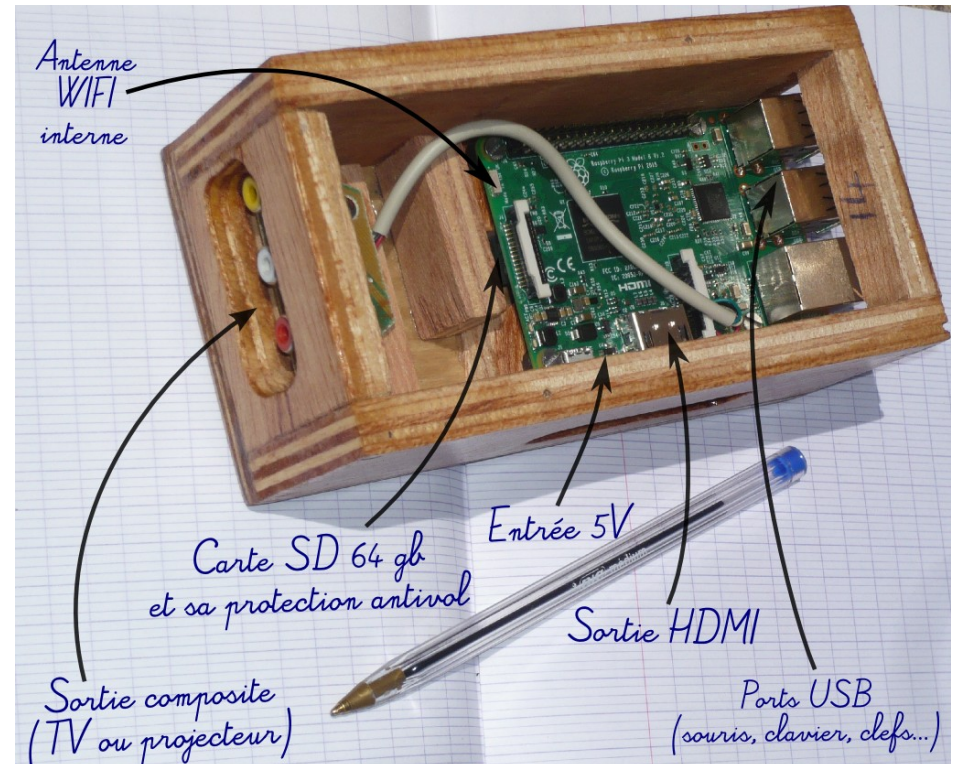 Antenne
WIFI
interne
Raspberry Pi 3 Model B V1.2
© Raspberry Pi 2015
HDMI
14
Carte SD 64 gb
et sa protection antivol
Entrée 5V
Sortie HDMI
Sortie composite
(TV ou projecteur)
Ports USB
(souris, clavier, clefs...)